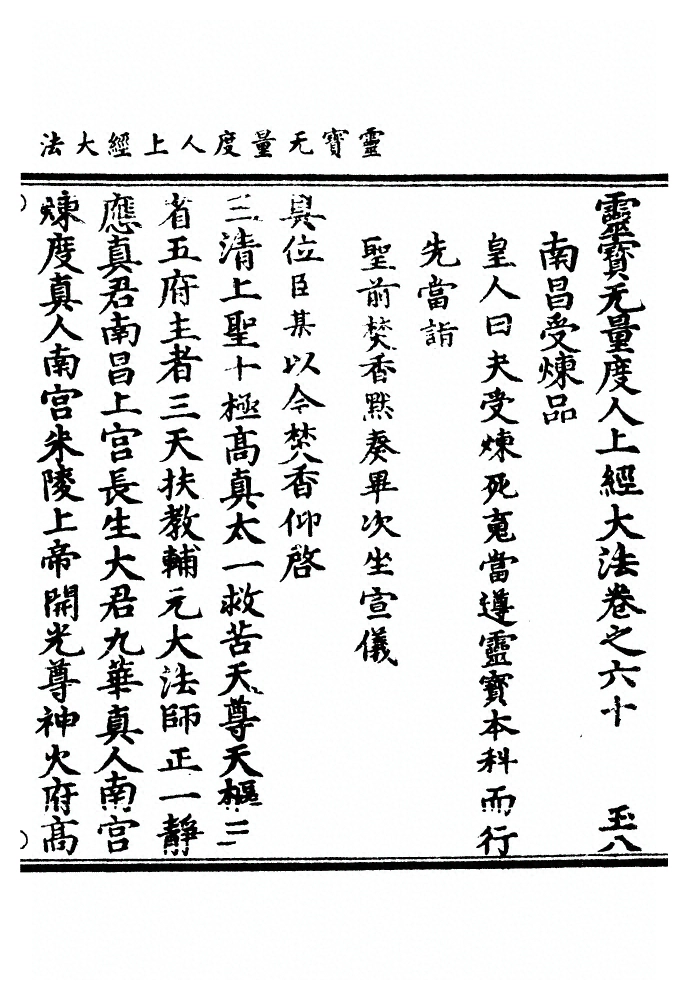 靈寶无量度人上經大法
靈寶无量度人上經大法卷之六十 玉八
南昌受煉品
皇人曰夫受煉死䰟當遵靈寶本科而行
先當詣
聖前焚香黙奏畢次坐宣儀
具位臣某以今焚香仰啓
三清上聖十極髙真太一救苦天尊天樞三
省五府主者三天扶教輔元大法師正一靜
應真君南昌上宫長生大君九華真人南宫
煉度真人南宫朱陵上帝開光尊神火府髙